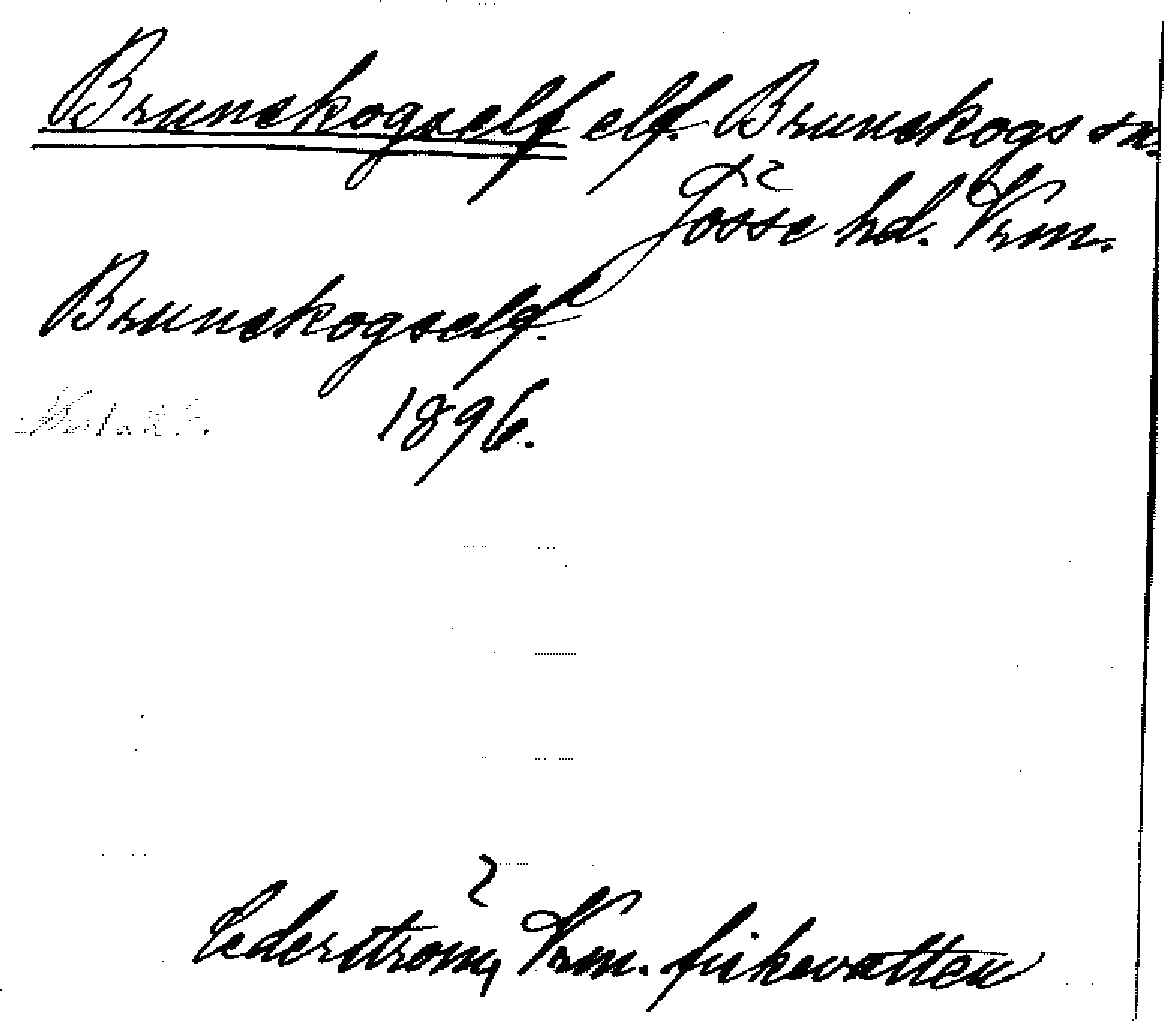 Brunskogself elf. Brunskogs sn.
Jösse hd. Vrm.
Brunskogself.
1896.
Cederström, Vrm. fiskevatten